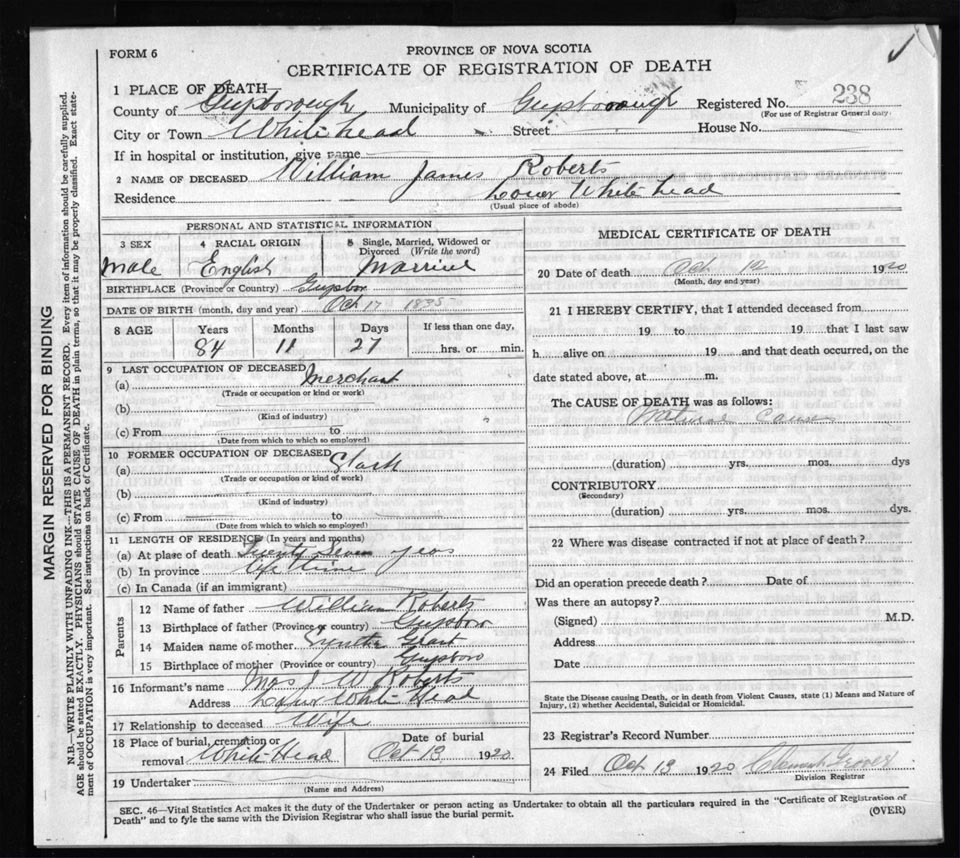 FORM 6
PROVINCE OF NOVA SCOTIA
CERTIFICATE OF REGISTRATION OF DEATH
1 PLACE OF DEATH
County of Guysborough Municipality of Guysborough Registered No. 238
(For use of Registrar General only)
City or Town White head Street House No.
If in hospital or institution, give name
2 NAME OF DECEASED William James Roberts
Residence Lower White head
(Usual place of abode)
PERSONAL AND STATISTICAL INFORMATION
3 SEX 4 RACIAL ORIGIN 5 Single, Married, Widowed or Divorced (Write the word)
Male English Married
BIRTHPLACE (Province or Country) Guysboro
DATE OF BIRTH (month, day and year) Oct 17 1835
8 AGE Years Months Days If less than one day,
84 11 27 hrs. or min.
9 LAST OCCUPATION OF DECEASED
(a) Merchant
(Trade or occupation or kind or work)
(b)
(Kind of industry)
(c) From to
(Date from which to which so employed)
10 FORMER OCCUPATION OF DECEASED
(a)
(Trade or occupation or kind of work)
(b)
(Kind of industry)
(c) From to
(Date from which to which so employed)
11 LENGTH OF RESIDENCE (In years and months)
(a) At place of death Twenty Seven years
(b) In province life time
(c) In Canada (if an immigrant)
Parents
12 Name of father William Roberts
13 Birthplace of father (Province or country) Guysboro
14 Maiden name of mother Grant
15 Birthplace of mother (Province or country) Guysboro
16 Informant's name Mrs J W Roberts
Address Lower White Head
17 Relationship to deceased Wife
18 Place of burial, cremation or removal White Head Date of burial Oct 13 1920
19 Undertaker
(Name and Address)
MEDICAL CERTIFICATE OF DEATH
20 Date of death Oct 12 1920
(Month, day and year)
21 I HEREBY CERTIFY, that I attended deceased from
19 to 19 that I last saw
h alive on 19 and that death occurred, on the
date stated above, at m.
The CAUSE OF DEATH was as follows:
Natural Cause
(duration) yrs. mos. dys
CONTRIBUTORY
(Secondary)
(duration) yrs. mos. dys.
22 Where was disease contracted if not at place of death?
Did an operation precede death? Date of
Was there an autopsy?
(Signed) M.D.
Address
Date
State the Disease causing Death, or in death from Violent Causes, state (1) Means and Nature of
Injury, (2) whether Accidental, Suicidal or Homicidal.
23 Registrar's Record Number
24 Filed Oct 13 1920
Division Registrar
SEC. 46—Vital Statistics Act makes it the duty of the Undertaker or person acting as Undertaker to obtain all the particulars required in the "Certificate of Registration of
Death" and to fyle the same with the Division Registrar who shall issue the burial permit.
(OVER)
MARGIN RESERVED FOR BINDING
N.B.—WRITE PLAINLY WITH UNFADING INK—THIS IS A PERMANENT RECORD. Every item of information should be carefully supplied.
AGE should be stated EXACTLY. PHYSICIANS should STATE CAUSE OF DEATH in plain terms, so that it may be properly classified. Exact state-
ment of OCCUPATION is very important. See instructions on back of Certificate.